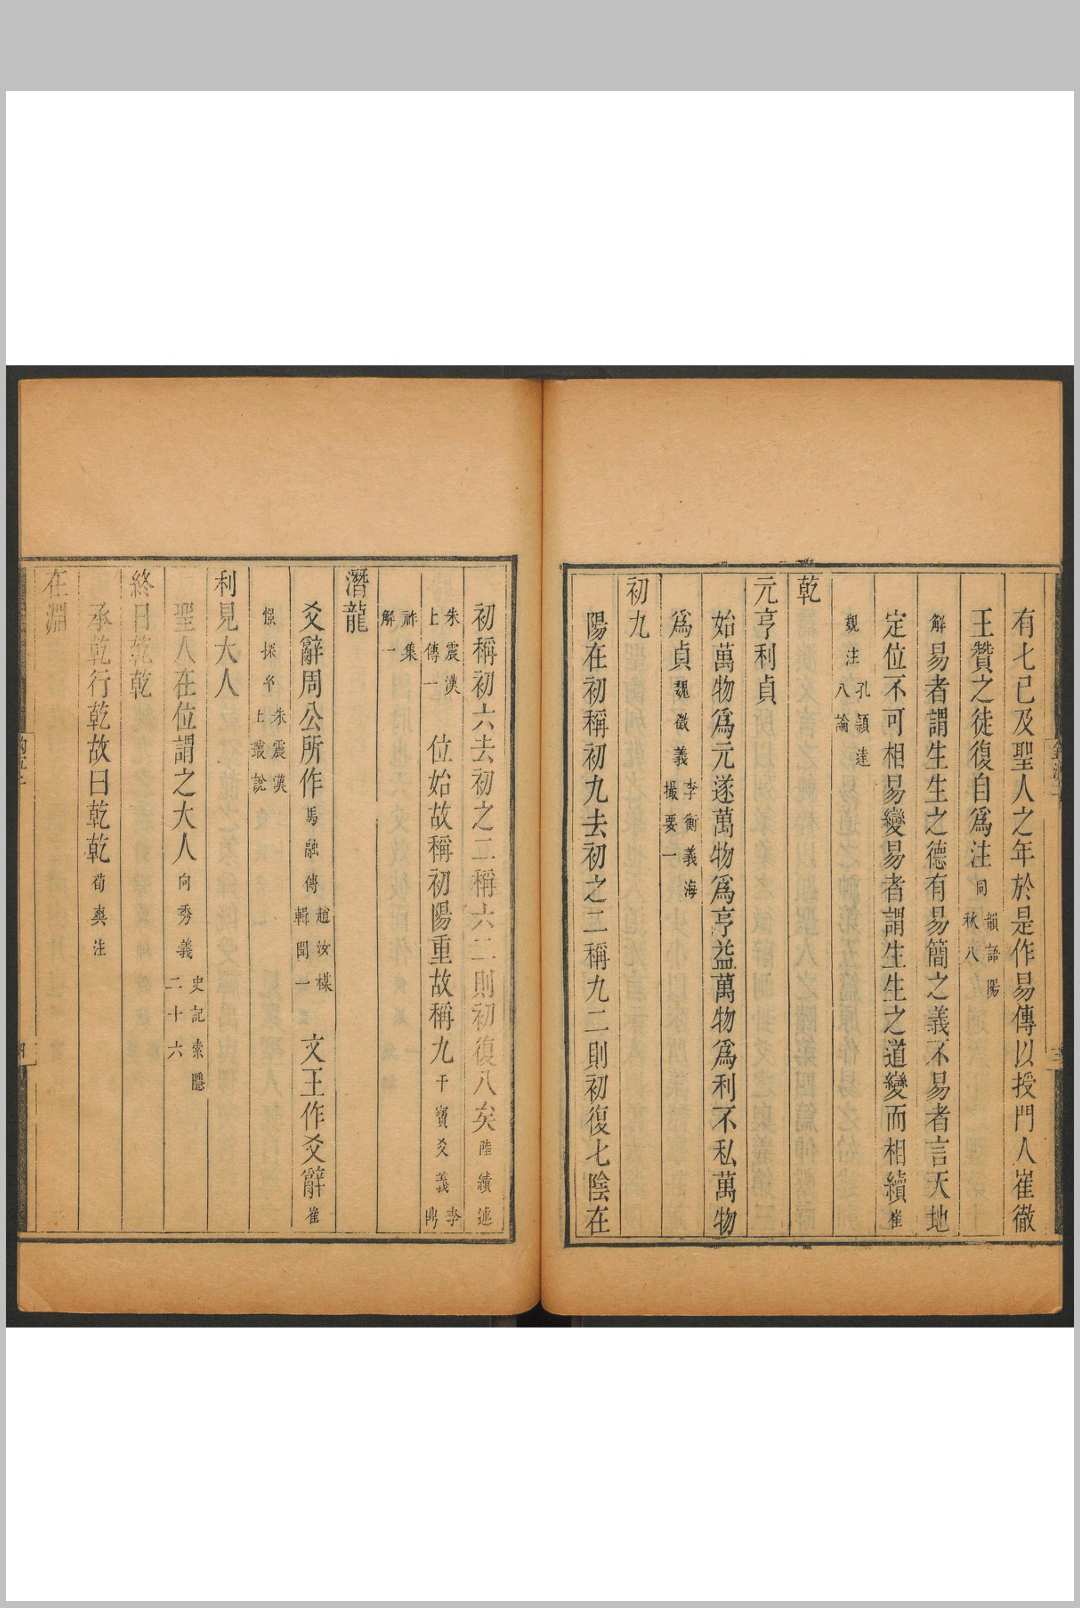 有七已及聖人之年於是作易傳以授門人崔徹
王贊之徒復自爲注同韻語陽秋八
解易者謂生生之德有易簡之義不易者言天地
定位不可相易變易者謂生生之道變而相續崔
覲注孔穎達八論
乾
元亨利貞
始萬物爲元遂萬物爲亨益萬物爲利不私萬物
爲貞魏徵義李衡義海撮要一
初九
陽在初稱初九去初之二稱九二則初復七陰在
初稱初六去初之二稱六二則初復八矣陸績述
朱震漢上傳一 位始故稱初陽重故稱九干寶爻義李
解一
潛龍
爻辭周公所作馬融傳趙汝楳輯聞一 文王作爻辭崔
憬探玄朱震漢上叢說
利見大人
聖人在位謂之大人向秀義史記索隱二十六
終日乾乾
承乾行乾故曰乾乾荀爽注
在淵